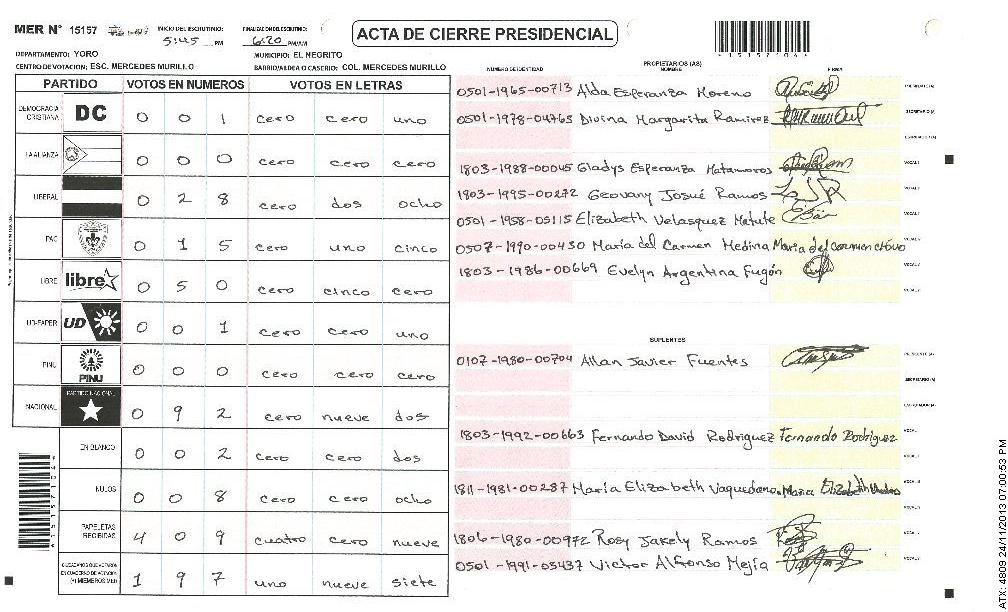 MER N° 15157 INICIO DEL ESCRUTINIO: 5:45 PM FINALIZACION DEL ESCRUTINIO: 6:20 PM/AM
ACTA DE CIERRE PRESIDENCIAL
DEPARTAMENTO: YORO MUNICIPIO: EL NEGRITO
CENTRO DE VOTACION: ESC. MERCEDES MURILLO BARRIO/ALDEA O CASERIO: COL. MERCEDES MURILLO
PARTIDO VOTOS EN NUMEROS VOTOS EN LETRAS
DEMOCRACIA CRISTIANA DC 0 0 1 cero cero uno
LA ALIANZA 0 0 0 cero cero cero
LIBERAL 0 2 8 cero dos ocho
PAC 0 1 5 cero uno cinco
LIBRE libre 0 5 0 cero cinco cero
UD-FAPER UD 0 0 1 cero cero uno
PINU PINU 0 0 0 cero cero cero
NACIONAL PARTIDO NACIONAL 0 9 2 cero nueve dos
EN BLANCO 0 0 2 cero cero dos
NULOS 0 0 8 cero cero ocho
PAPELETAS RECIBIDAS 4 0 9 cuatro cero nueve
CIUDADANOS QUE VOTARON EN CUADERNO DE VOTACION (+) MIEMBROS MER 1 9 7 uno nueve siete
PROPIETARIOS (AS)
NUMERO DE IDENTIDAD NOMBRE FIRMA
0501-1965-00713 Alda Esperanza Moreno PRESIDENTE (A)
0501-1978-04765 Divina Margarita Ramirez SECRETARIO (A)
ESCRUTADOR (A)
1803-1988-00045 Gladys Esperanza Matamoros VOCAL I
1903-1995-00272 Geovany Josué Ramos
0501-1958-05115 Elizabeth Velasquez Matute
0507-1990-00430 María del Carmen Medina Maria del carmen
1803-1986-00669 Evelyn Argentina Fugón
SUPLENTES
0107-1980-00704 Allan Javier Fuentes PRESIDENTE (A)
SECRETARIO (A)
ESCRUTADOR (A)
1803-1992-00663 Fernando David Rodriguez Fernando Rodriguez
1811-1981-00287 María Elizabeth Vaquedano. Maria Elizabeth
1806-1980-00972 Rosy Jakely Ramos
0501-1991-03437 Victor Alfonso Mejía
ATX: 4809 24/11/2013 07:00:53 PM